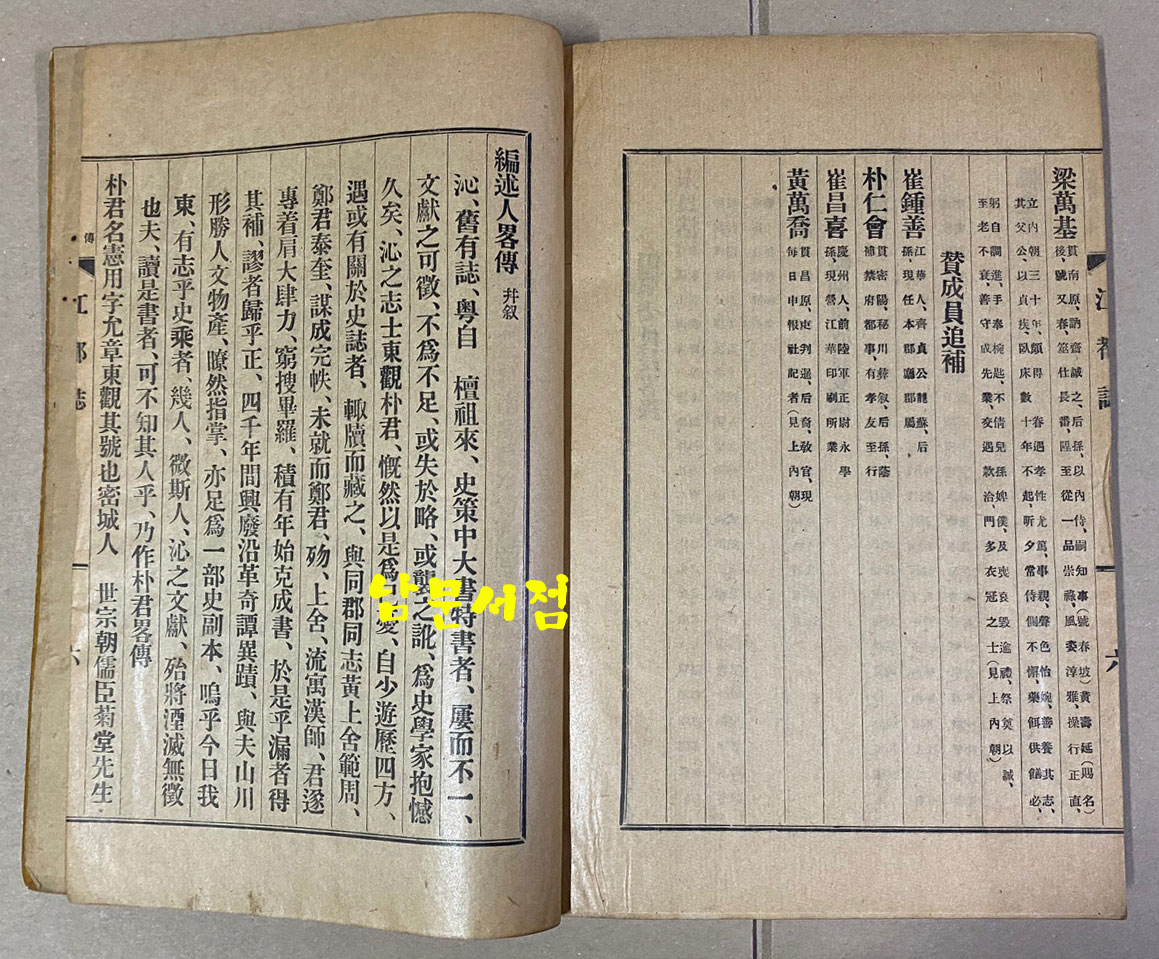 江都誌 六
梁萬基 貫南原、訥齋誠之后孫、以內侍嗣知事(號春坡)黃壽延(賜名
後、號又春、筮仕長番、陞至從一品崇祿、風姿淳雅、操行正直、
立內朝三十年、頗得眷遇、孝性尤篤、事親、聲色怡婉、善養其志、
其父公、以貞疾、臥床數十年不起、昕夕常侍側不懈、藥餌供饍必、
躬自調進、手奉椀匙、不倩兒孫婢僕、及喪哀毀逾禮、祭奠以誠、
至老不衰、善守成先業、交遇款洽、門多衣冠之士(見上內朝)
贊成員追補
崔鍾善 江華人、齊貞公龍蘇、后
孫、現任本郡廳郡屬、
朴仁會 貫密陽、秘川彝叙、后孫、蔭
補禁府都事、有孝友至行
崔昌喜 慶州人、前陸軍正尉永學
孫、現營江華印刷所業
黃萬喬 貫昌原、吏判暹、后裔、敎官、現
每日申報社記者(見上內朝)
編述人畧傳 幷叙
沁、舊有誌、粤自 檀祖來、史策中大書特書者、屢而不一、
文獻之可徵、不爲不足、或失於略、或襲之訛、爲史學家抱憾
久矣、沁之志士東觀朴君、慨然以是爲己憂、自少遊歷四方、
遇或有關於史誌者、輙牘而藏之、與同郡同志黃上舍範周、
鄭君泰奎、謀成完帙、未就而鄭君、殀、上舍、流寓漢師、君遂
專着肩大肆力、窮搜畢羅、積有年始克成書、於是乎漏者得
其補、謬者歸乎正、四千年間興廢沿革奇譚異蹟、與夫山川
形勝人文物產、瞭然指掌、亦足爲一部史副本、嗚乎今日我
東、有志乎史乘者、幾人、微斯人、沁之文獻、殆將湮滅無徵
也夫、讀是書者、可不知其人乎、乃作朴君畧傳
朴君名憲用字允章東觀其號也密城人 世宗朝儒臣菊堂先生
傳 江都誌 六
남문서점